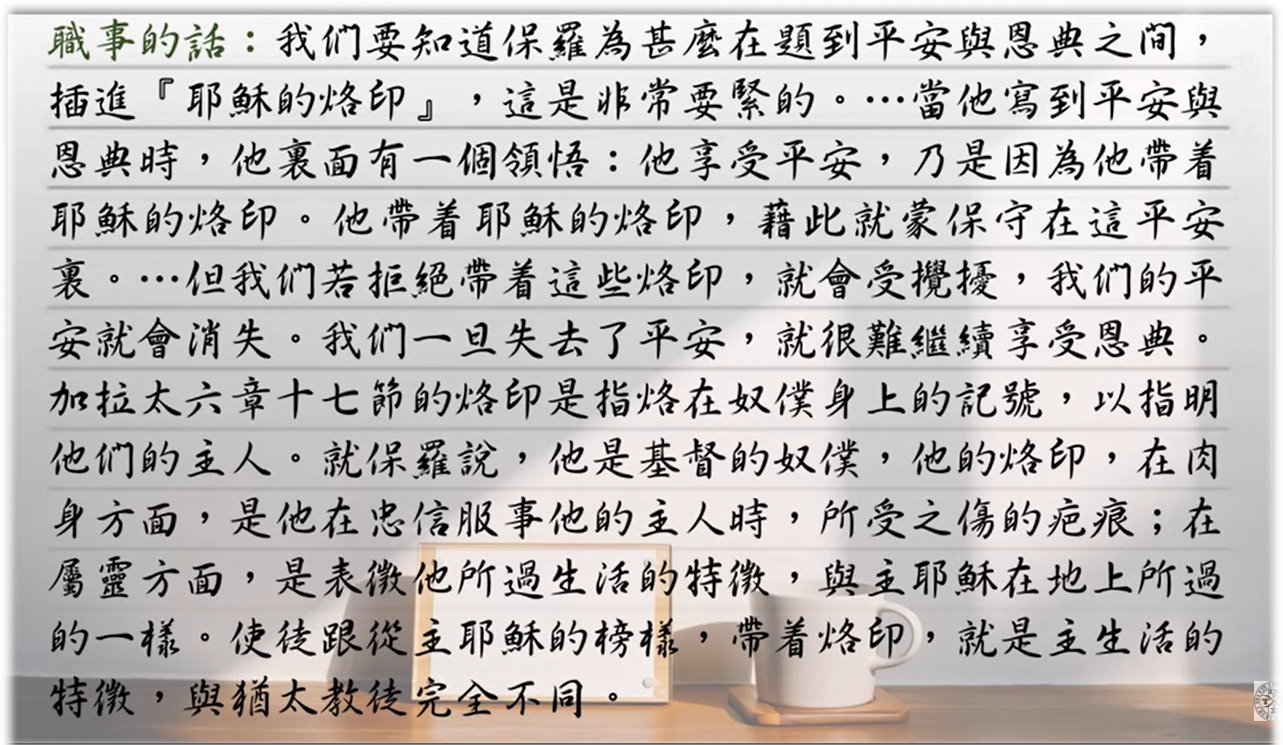 職事的話：我们要知道保羅為甚麼在題到平安與恩典之間，
插進『耶穌的烙印』，這是非常要緊的。…當他寫到平安與
恩典時，他裏面有一個領悟：他享受平安，乃是因為他帶着
耶穌的烙印。他帶着耶穌的烙印，藉此就蒙保守在這平安
裏。…但我们若拒絕帶着這些烙印，就會受攪擾，我们的平
安就會消失。我们一旦失去了平安，就很難繼續享受恩典。
加拉太六章十七節的烙印是指烙在奴僕身上的記號，以指明
他們的主人。就保羅說，他是基督的奴僕，他的烙印，在肉
身方面，是他在忠信服事他的主人時，所受之傷的疤痕；在
屬靈方面，是表徵他所過生活的特徵，與主耶穌在地上所過
的一樣。使徒跟從主耶穌的榜樣，帶着烙印，就是主生活的
特徵，與猶太教徒完全不同。